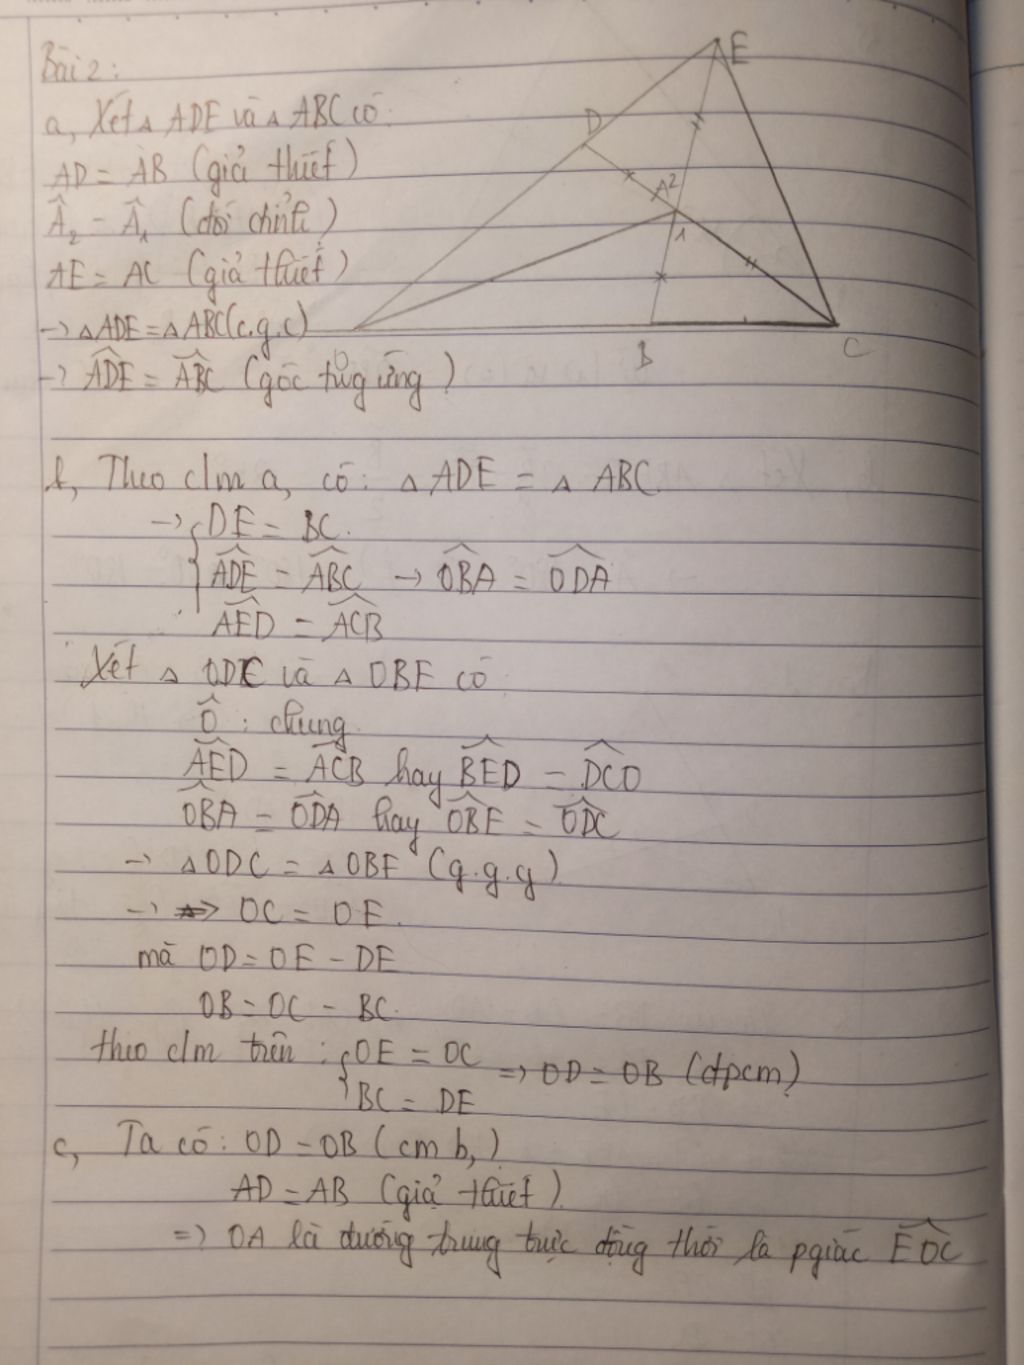 Bài 2:
a, Xét △ ADE và △ ABC có:
AD = AB (giả thiết)
Â₂ = Â₁ (đối đỉnh)
AE = AC (giả thiết)
→ △ ADE = △ ABC (c.g.c)
→ ADE = ABC (góc tương ứng)
E
D
A
2
1
B
C
b, Theo clm a, có: △ ADE = △ ABC
→ { DE = BC.
ADE = ABC → OBA = ODA
AED = ACB
Xét △ ODC và △ OBE có
Ô : chung
AED = ACB hay BED = DCO
OBA = ODA hay OBE = ODC
→ △ ODC = △ OBE (g.g.g)
→ OC = OE.
mà OD = OE - DE
OB = OC - BC.
theo clm trên : { OE = OC ⇒ OD = OB (đpcm)
BC = DE
c, Ta có: OD = OB (cm b,)
AD = AB (giả thiết)
⇒ OA là đường trung trực đồng thời là pgiác EOC